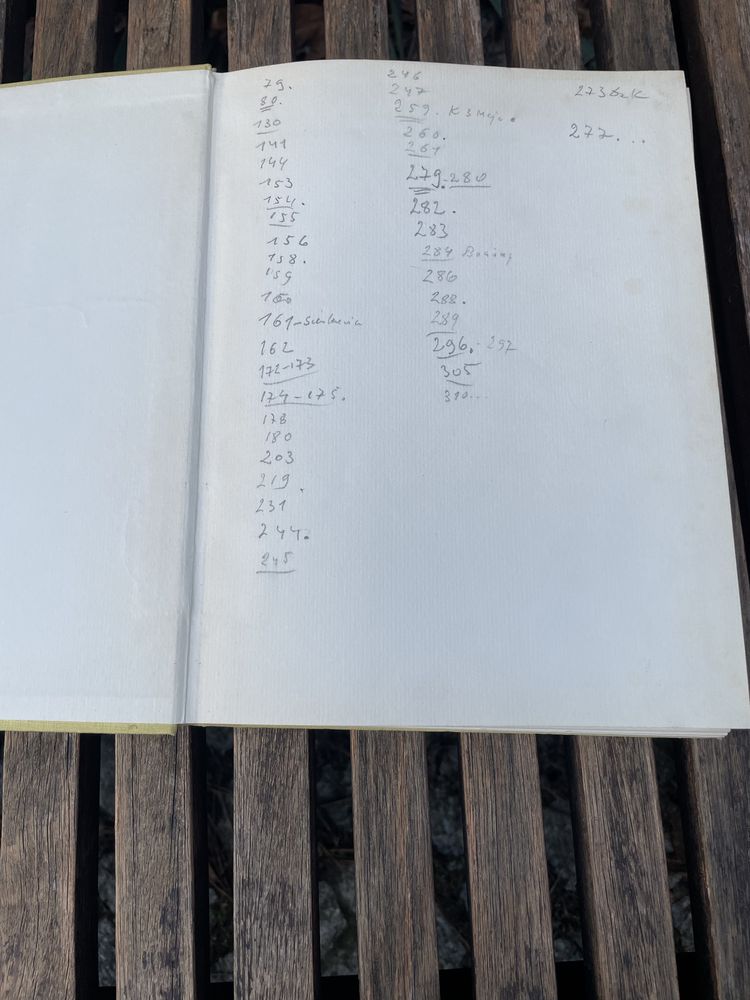 79.
80.
130
141
144
153
154.
155
156
158.
159
160
161-
162
172-173
174-175.
178
180
203
219.
231
244.
245
246
247
259. K
260.
261
279.-280
282.
283
284
286
288.
289
296.-297
305
310...
273
277...